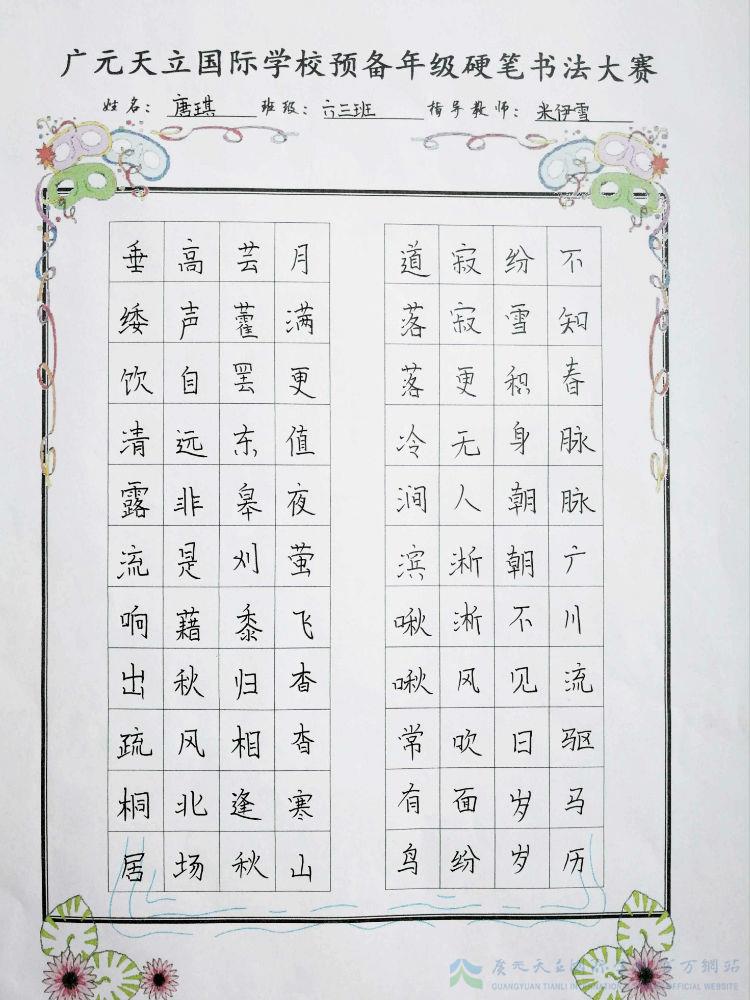 广元天立国际学校预备年级硬笔书法大赛
姓名：唐琪 班级：六三班 指导教师：米伊雪
垂𬘬饮清露流响出疏桐居
高声自远非是藉秋风北场
芸藿罢东皋刈黍归相逢秋
月满更值夜萤飞杳杳寒山
道落落冷涧滨啾啾常有鸟
寂寂更无人淅淅风吹面纷
纷雪积身朝朝不见日岁岁
不知春脉脉广川流驱马历
广元天立国际 方網站
GUANGYUAN TIANLI OFFICIAL WEBSITE